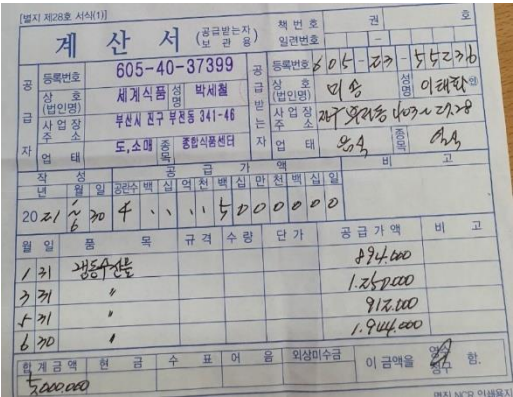 [별지 제28호 서식(1)]
계 산 서 (공급받는자 보관용)
책번호 권 호
일련번호 -
공급자
등록번호 605-40-37399
상호(법인명) 세계식품 성명 박세철
사업장주소 부산시 진구 부전동 341-46
업태 도,소매 종목 종합식품센터
공급받는자
등록번호 605-23-55236
상호(법인명) 미송 성명 이태화 ㊞
사업장주소
업태 음식 종목
작성 공급가액 비고
년 월 일 공란수 백 십 억 천 백 십 만 천 백 십 일
2021 6 30 4 5 0 0 0 0 0 0
월 일 품목 규격 수량 단가 공급가액 비고
1 31 냉동수산물 894.000
3 31 〃 1.250.000
5 31 〃 912.000
6 30 〃 1.944.000
합계금액 현금 수표 어음 외상미수금 이 금액을 영수 청구 함.
5,000,000